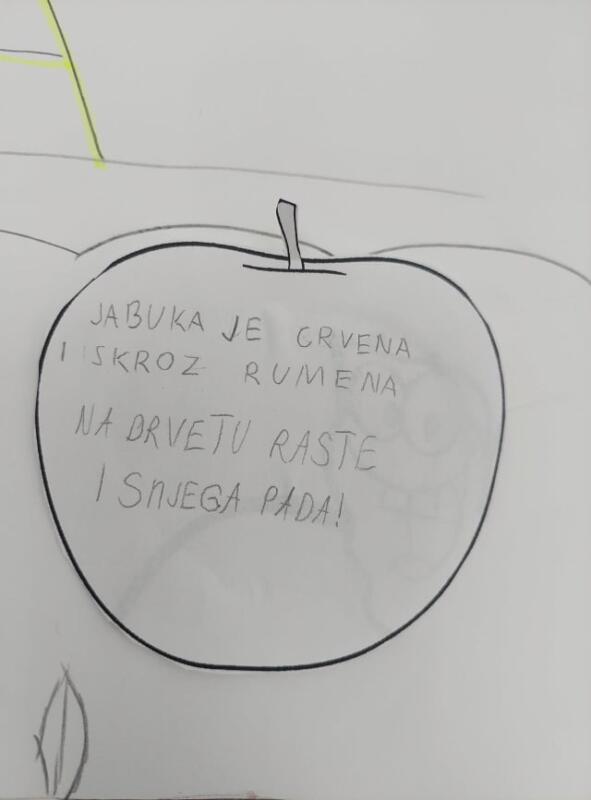 JABUKA JE CRVENA
I ISKROZ RUMENA
NA DRVETU RASTE
I SNJEGA PADA!